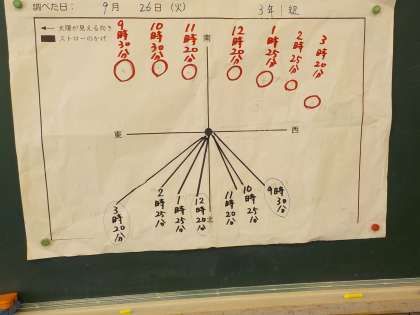 調べた日： 9月 26日（火） 3年 組
太陽が見える向き
ストローのかげ
9時30分
10時30分
11時20分
12時20分
1時25分
2時25分
3時20分
南
東
西
北
3時20分
2時25分
1時25分
12時20分
11時20分
10時25分
9時30分